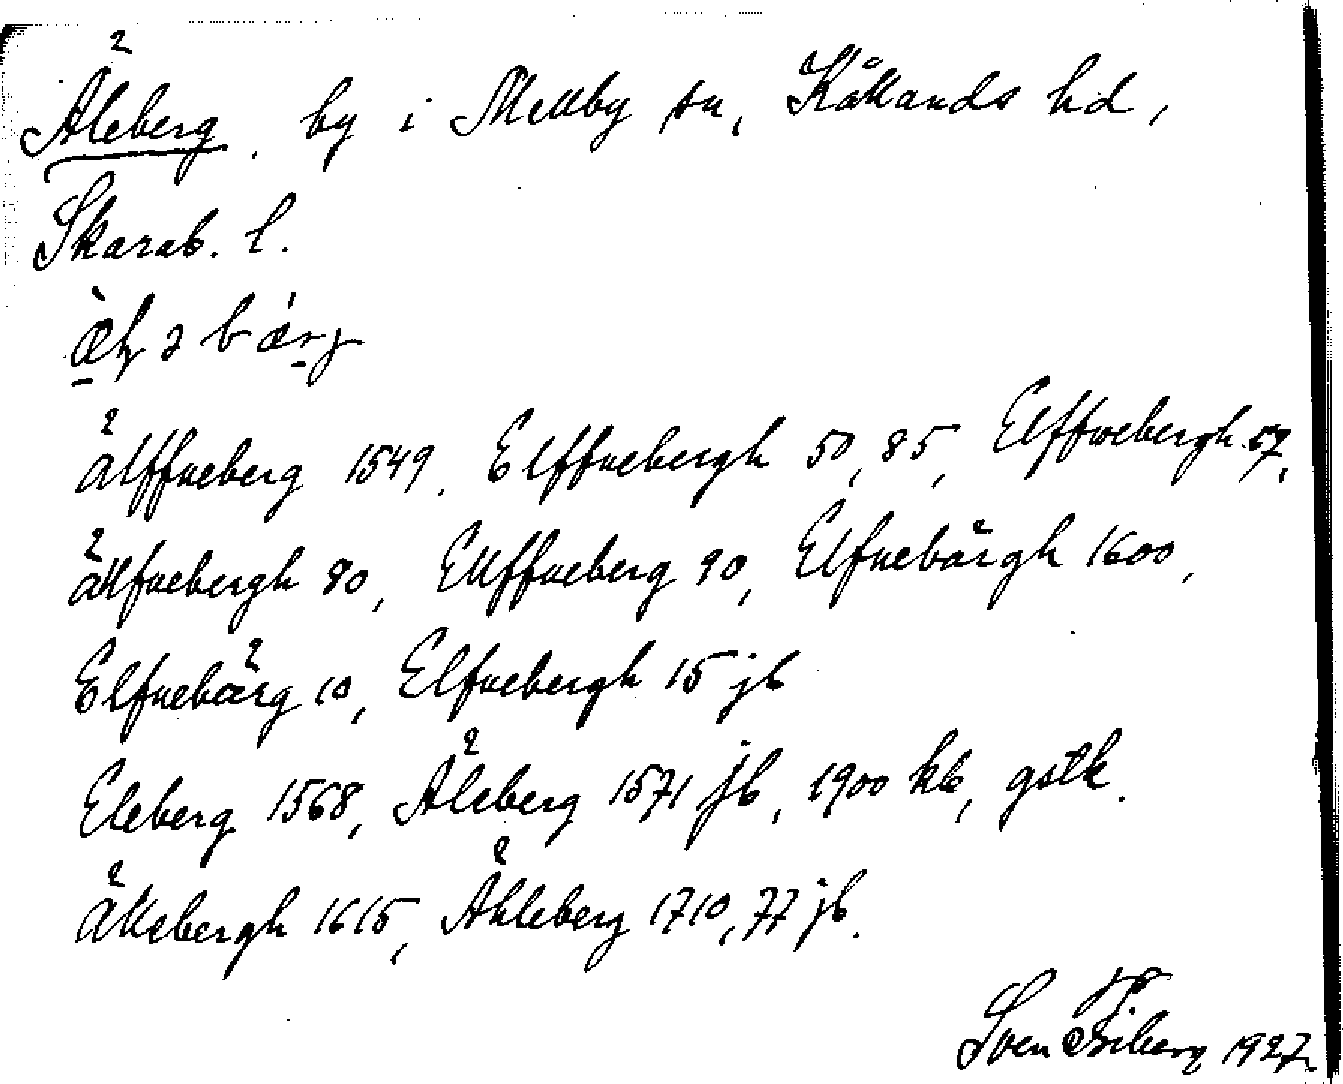 Äleberg, by i Mellby sn, Kållands hd,
Skarab. l.
älffueberg 1549, Elffuebergh 50, 85, Elffwebergh 57,
ällfuebergh 80, Ellffueberg 90, Elfuebärgh 1600,
Elfuebärg 10, Elfuebergh 15 jb
Eleberg 1568, Äleberg 1571 jb, 1900 kb, gstk.
ällebergh 1615, Ähleberg 1710, 77 jb.
Sven Fiberg 1927